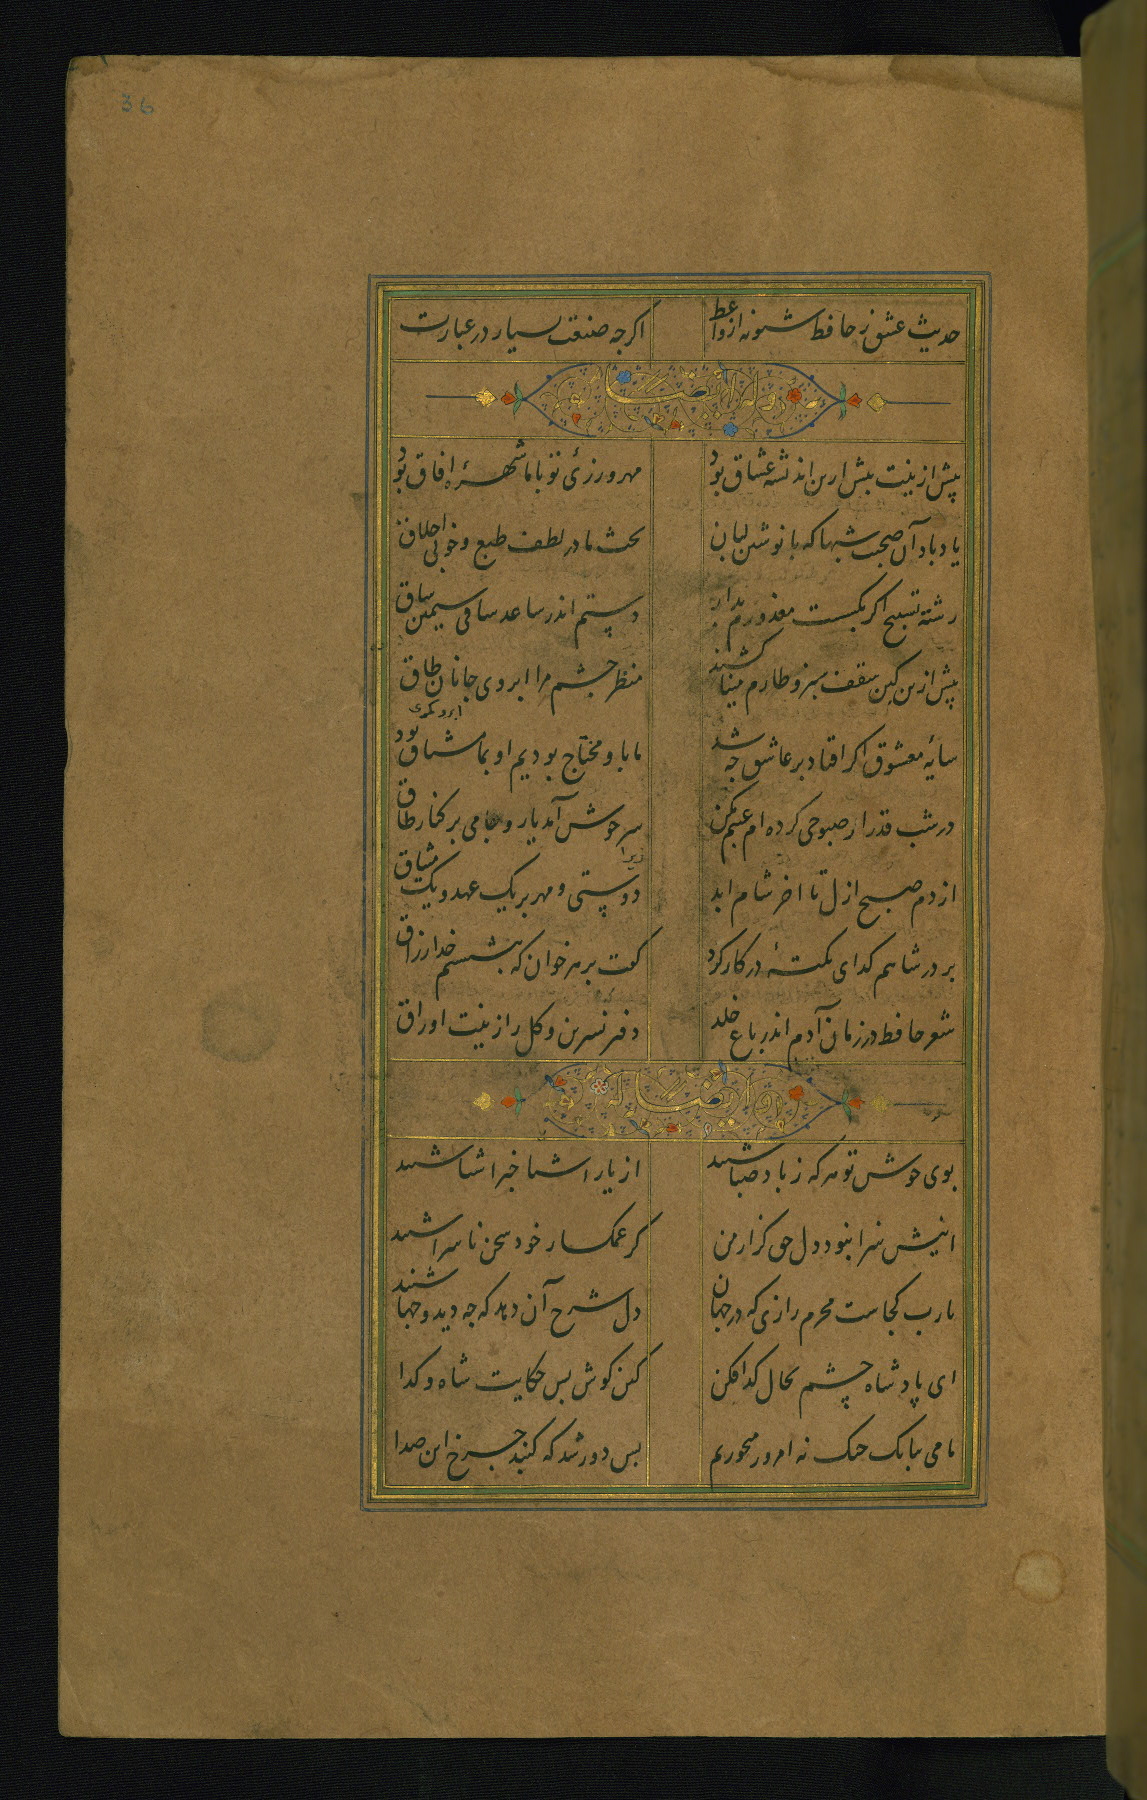 36
حدیث عشق ز حافظ شنو نه از واعظ اکرچه صنعت بسیار در عبارت
وله ایضا
پیش ازینت بیش ازین اندیشه عشاق بود مهرورزئ تو باما شهرۀ افاق بود
یاد باد آن صحبت شبها که با نوشین لبان بحث ما در لطف طبع و خوبی اخلاق
رشته تسبیح اکر بکسست معذورم بدار دستم اندر ساعد ساقی سیمین ساق
پیش ازین کین سقف سبز و طارم مینا کشند منظر چشم مرا ابروی جانان طاق
سایۀ معشوق اکر افتاد بر عاشق چه شد ما باو محتاج بودیم او بما مشتاق بود
در شب قدر ار صبوحی کرده ام عیبم مکن سر خوش آمد یار و جامی بر کنار طاق
از دم صبح ازل تا اخر شام ابد دوستی و مهر بر یک عهد و یک میثاق
بر در شاهم کدای نکتۀ در کار کرد کفت بر هر خوان که بنشستم خدا رزاق
شعر حافظ در زمان آدم اندر باغ خلد دفتر نسرین و کل را زینت اوراق
ایضا له
بوی خوش تو هر که ز باد صبا شنید از یار اشنا خبر اشنا شنید
اینش سزا نبود دل حق کزار من کز غمکسار خود سخن ناسزا شنید
یارب کجاست محرم رازی که در جهان دل شرح آن دهد که چه دید و چها شنید
ای پادشاه چشم بحال کدا فکن کین کوش بس حکایت شاه و کدا
ما می ببانک چنک نه امروز میخوریم بس دور شد که کنبد چرخ این صدا